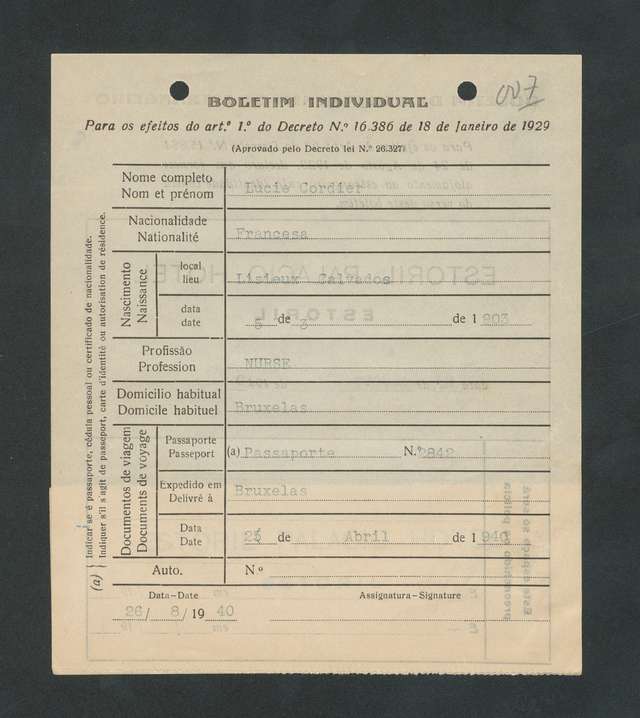 007
BOLETIM INDIVIDUAL
Para os efeitos do art.º 1.º do Decreto N.º 16.386 de 18 de Janeiro de 1929
(Aprovado pelo Decreto lei N.º 26.327)
Nome completo
Nom et prénom
Lucie Cordier
Nacionalidade
Nationalité
Francesa
Nascimento
Naissance
local
lieu
Lisieux Calvados
data
date
5 de 3 de 1 903
Profissão
Profession
NURSE
Domicilio habitual
Domicile habituel
Bruxelas
Documentos de viagem
Documents de voyage
Passaporte
Passeport
(a) Passaporte N.º 2842
Expedido em
Delivré à
Bruxelas
Data
Date
de Abril de 1 940
Auto.
Nº
Data-Date
26/ 8/19 40
Assignatura-Signature
(a) Indicar se é passaporte, cédula pessoal ou certificado de nacionalidade.
Indiquer s'il s'agit de passeport, carte d'identité ou autorisation de résidence.
ESTORIL PALACIO HOTEL
ESTORIL
Este espaço só será
preenchido pela policia